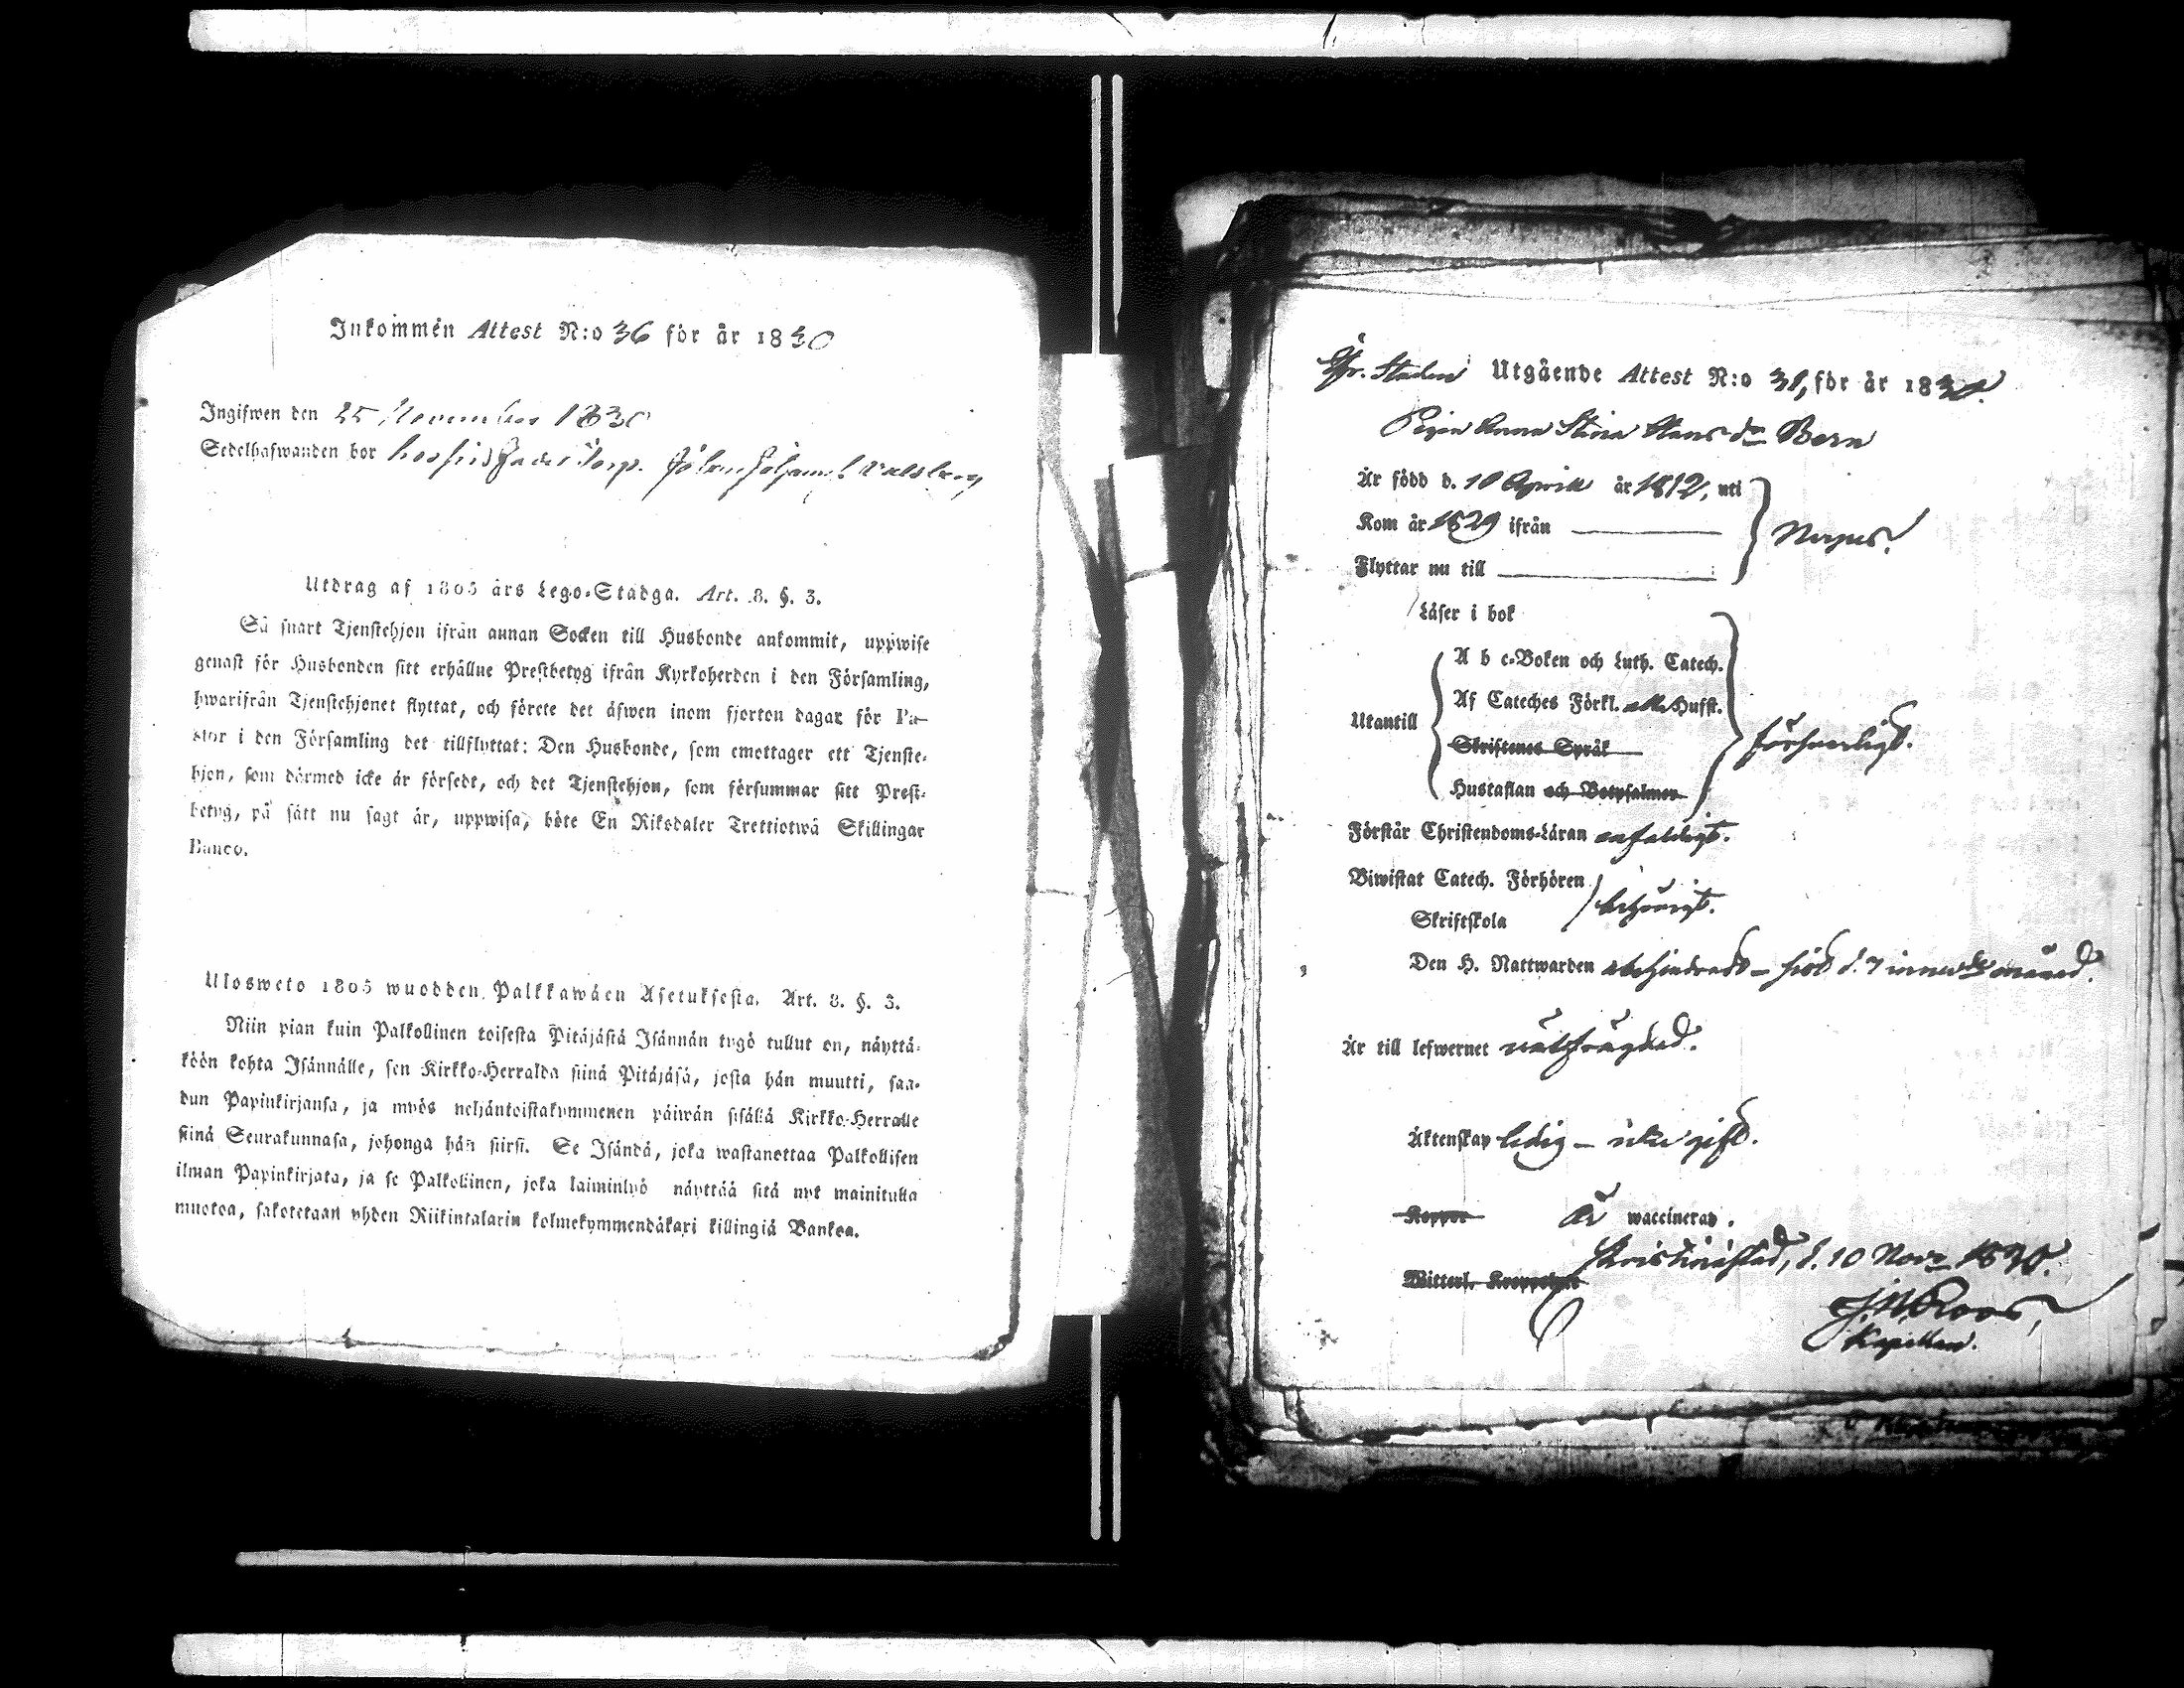 Inkommen Attest N:o 36 för år 1830
Ingifwen den 25 November 1830
Sedelhafwanden bor hos sin
Utdrag af 1805 års Lego-Stadga. Art. 8. §. 3.
Så snart Tjenstehjon ifrån annan Socken till Husbonde ankommit, uppwise
genast för Husbonden sitt erhållne Prestbetyg ifrån Kyrkoherden i den Församling,
hwarifrån Tjenstehjonet flyttat, och förete det äfwen inom fjorton dagar för Pa-
stor i den Församling det tillflyttat: Den Husbonde, som emottager ett Tjenste-
hjon, som därmed icke är försedt, och det Tjenstehjon, som försummar sitt Prest-
betyg, på sätt nu sagt är, uppwisa, böte En Riksdaler Trettiotwå Skillingar
Banco.
Ulosweto 1805 wuodden Palkkawäen Asetuksesta. Art. 8. §. 3.
Niin pian kuin Palkollinen toisesta Pitäjästä Isännän tygö tullut on, näyttä-
köön kohta Isännälle, sen Kirkko-Herralda siinä Pitäjäsä, josta hän muutti, saa-
dun Papinkirjansa, ja myös neljäntoistakymmenen päiwän sisällä Kirkko-Herralle
siinä Seurakunnasa, johonga hän siirsi. Se Isändä, joka wastanottaa Palkollisen
ilman Papinkirjata, ja se Palkollinen, joka laiminlyö näyttää sitä nyt mainitulla
muotoa, sakotetaan yhden Riikintalarin kolmekymmendäkaxi killingiä Bankoa.
Fr. Staden Utgående Attest N:o 31, för år 1830.
Pigan Anna Stina Hansdr Bern
Är född d. 10 Aprill år 1812, uti
Kom år 1829 ifrån
Närpes.
Flyttar nu till
Läser i bok
A b c-Boken och Luth. Catech.
Af Cateches Förkl. alla Hufst.
Utantill
Skriftenes Språk
försvarligt.
Hustaflan och Botpsalmer
Förstår Christendoms-Läran enfaldigt.
Biwistat Catech. Förhören
behörigt.
Skriftskola
Den H. Nattwarden obehindrad - sist d. 7 innevde månad.
Är till lefwernet oåtalad.
Äktenskap ledig - icke gift.
Koppor Är waccinerad.
Kristinestad, d. 10 Novr 1830.
Witterl. Kroppslyte
Roos,
Kapellan.